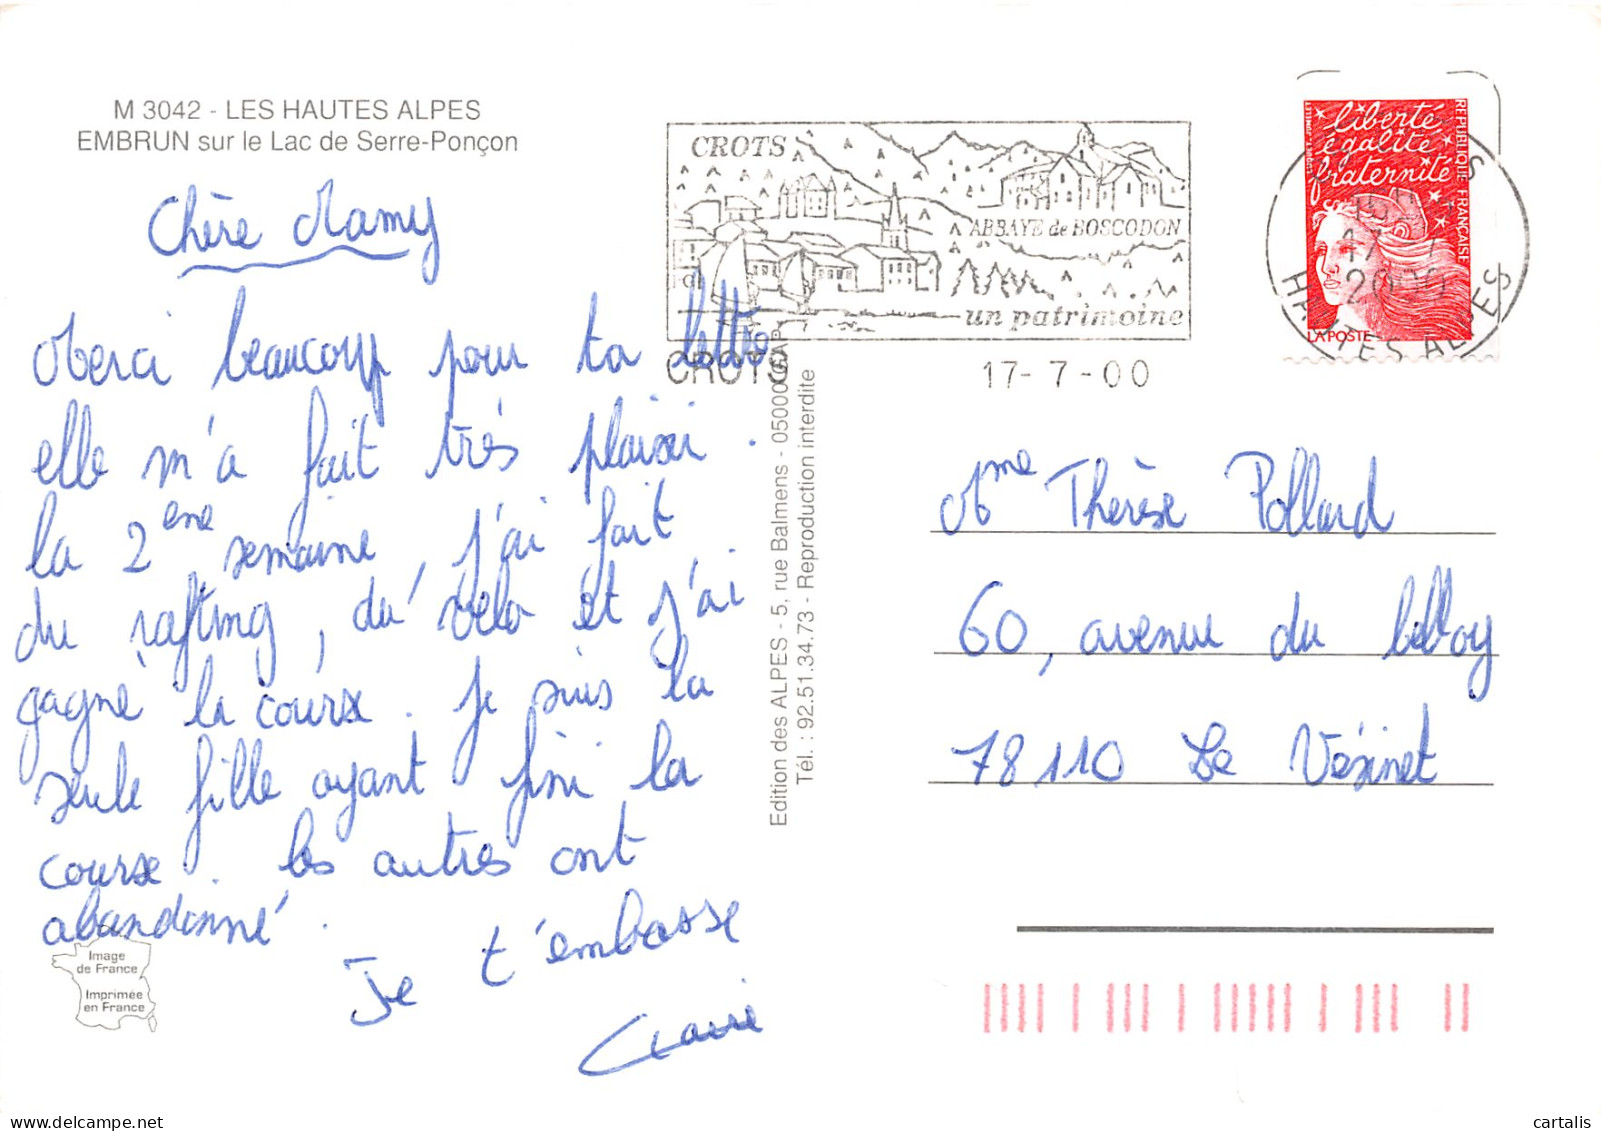 M 3042 - LES HAUTES ALPES
EMBRUN sur le Lac de Serre-Ponçon
Chère Mamy
Merci beaucoup pour ta lettre
elle m'a fait très plaisir.
la 2eme semaine, j'ai fait
du rafting, du vélo et j'ai
gagné la course. Je suis la
seule fille ayant fini la
course. les autres ont
abandonné.
Je t'embrasse
Claire
Image
de France
Imprimée
en France
Edition des ALPES - 5, rue Balmens - 05000 GAP
Tél. : 92.51.34.73 - Reproduction interdite
CROTS
ABBAYE de BOSCODON
un patrimoine
CROTS
17- 7 -00
liberté
égalité
fraternité
REPUBLIQUE FRANÇAISE
LA POSTE
17-7
2000
HAUTES ALPES
Mme Thérèse Pollard
60, avenue du belloy
78110 Le Vésinet
cartalis